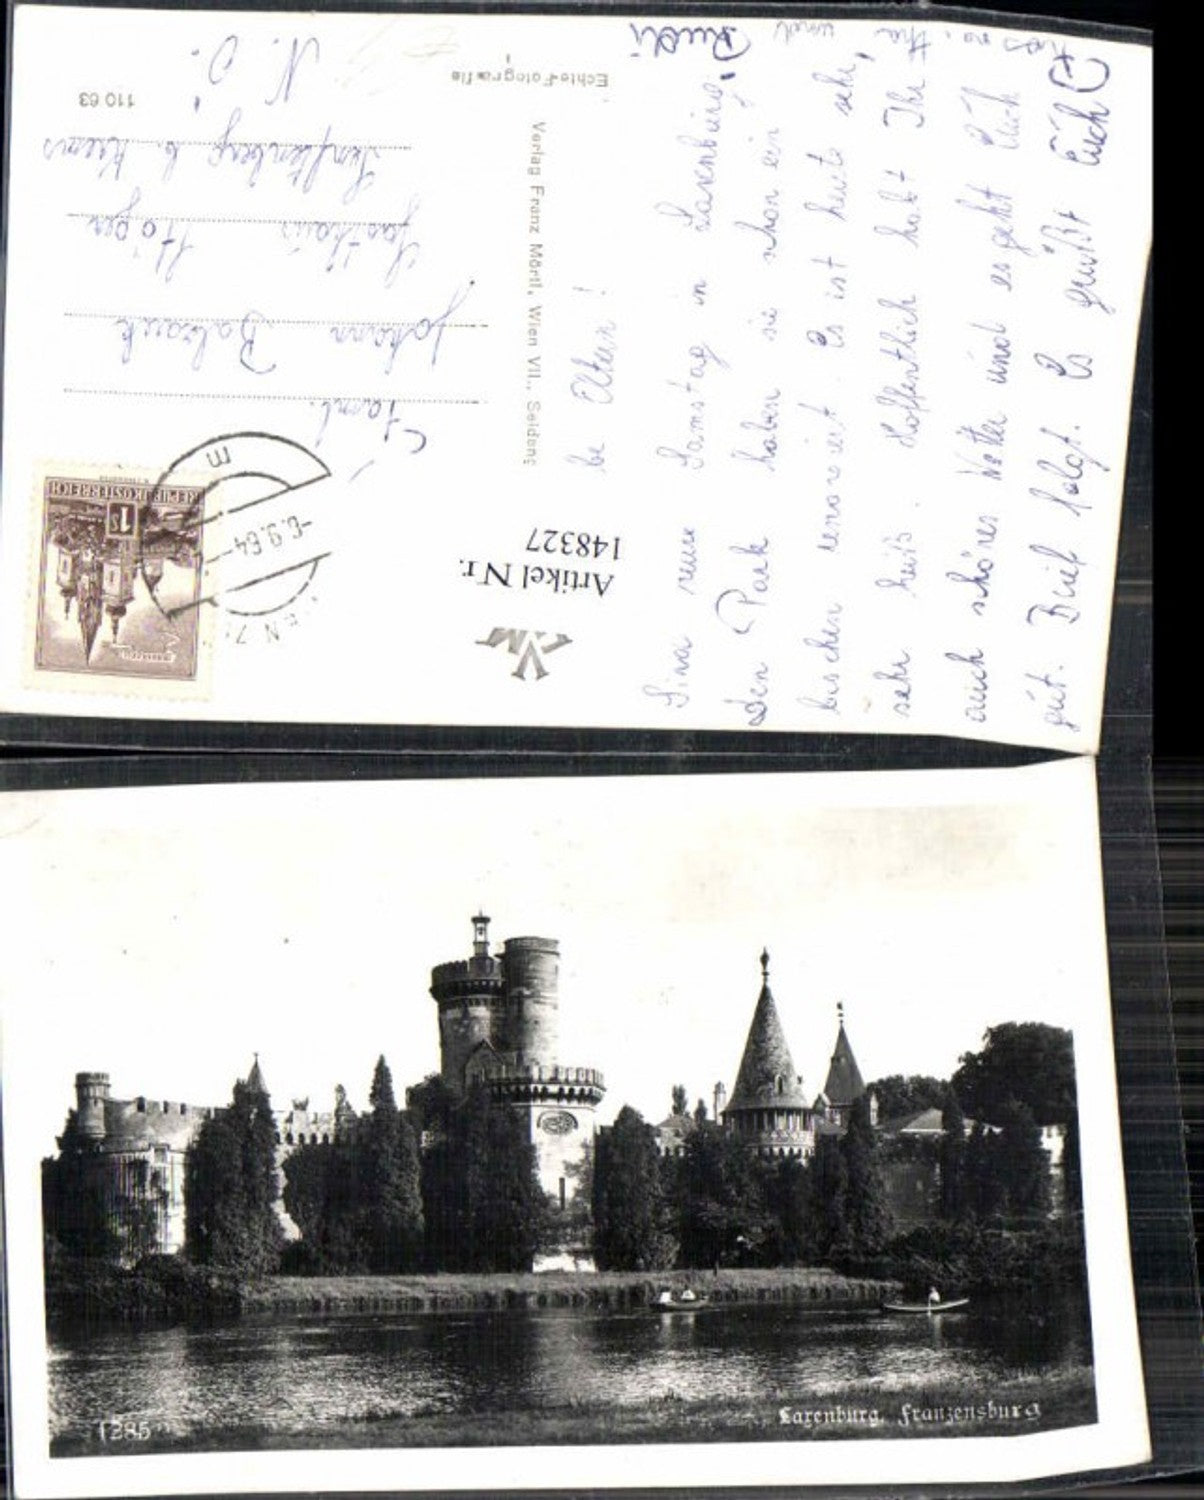 be Eltern!
Sina nune Samstag in Laxenburg,
den Park haben sie schon ein
bischen renoviert. Es ist heute sehr,
sehr heiß. Hoffentlich habt Ihr
auch schönes Wetter und es geht Euch
gut. Brief folgt. Es grüßt Euch
und
Rudi
Verlag Franz Mörtl, Wien VII., Seideng
Echte Fotografie
110 63
Artikel Nr.
148327
REPUBLIK ÖSTERREICH
1S
-6.9.64-
m
Fam.
Johann
Gasthaus
Senftenberg b. Krems
N. Ö.
1285
Laxenburg, Franzensburg